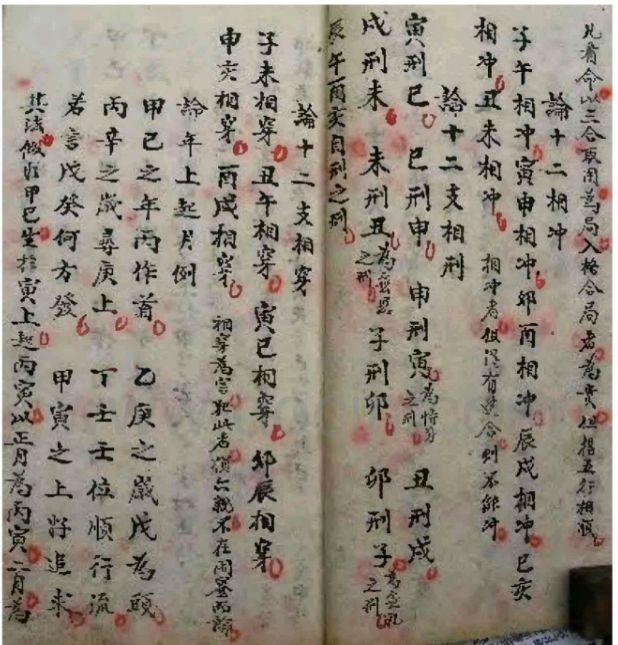 凡看命以三合取用為局入格合局者為貴但揩五行相順
論十二相冲
子午相冲寅申相冲卯酉相冲辰戌相冲巳亥
相冲丑未相冲 相冲者但逢有 合則不能冲
論十二支相刑
寅刑巳 巳刑申 申刑寅為恃勢之刑 丑刑戌
戌刑未 未刑丑為無恩之刑 子刑卯 卯刑子為無礼之刑
辰午酉亥自刑之刑
論十二支相穿
子未相穿 丑午相穿 寅巳相穿 卯辰相穿
申亥相穿 酉戌相穿 相穿為害犯此者 六親不在
論年上起月例
甲己之年丙作首 乙庚之歲戊為頭
丙辛之歲尋庚上 丁壬壬位順行流
若言戊癸何方發 甲寅之上好追求
其法假如甲己生於寅上起丙寅以正月為丙寅二月為